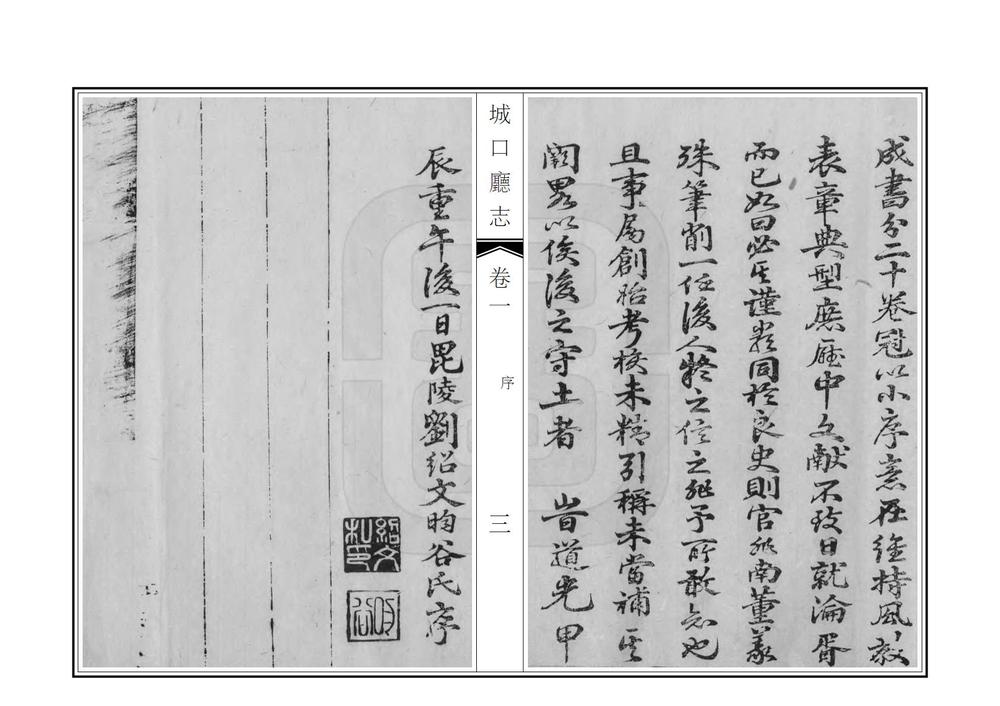 成書分二十卷冠以小序意在維持風教
表章典型庶廳中文獻不致日就淪胥
而已如曰必其謹嚴同於良史則官非南董義
殊筆削一任後人疑之信之非予所敢知也
且事屬創始考核未精引稱未當補其
闕畧以俟後之守土者 峕道光甲
城口廳志
卷一
序
三
辰重午後一日毘陵劉紹文昀谷氏序
紹文私印
昀谷